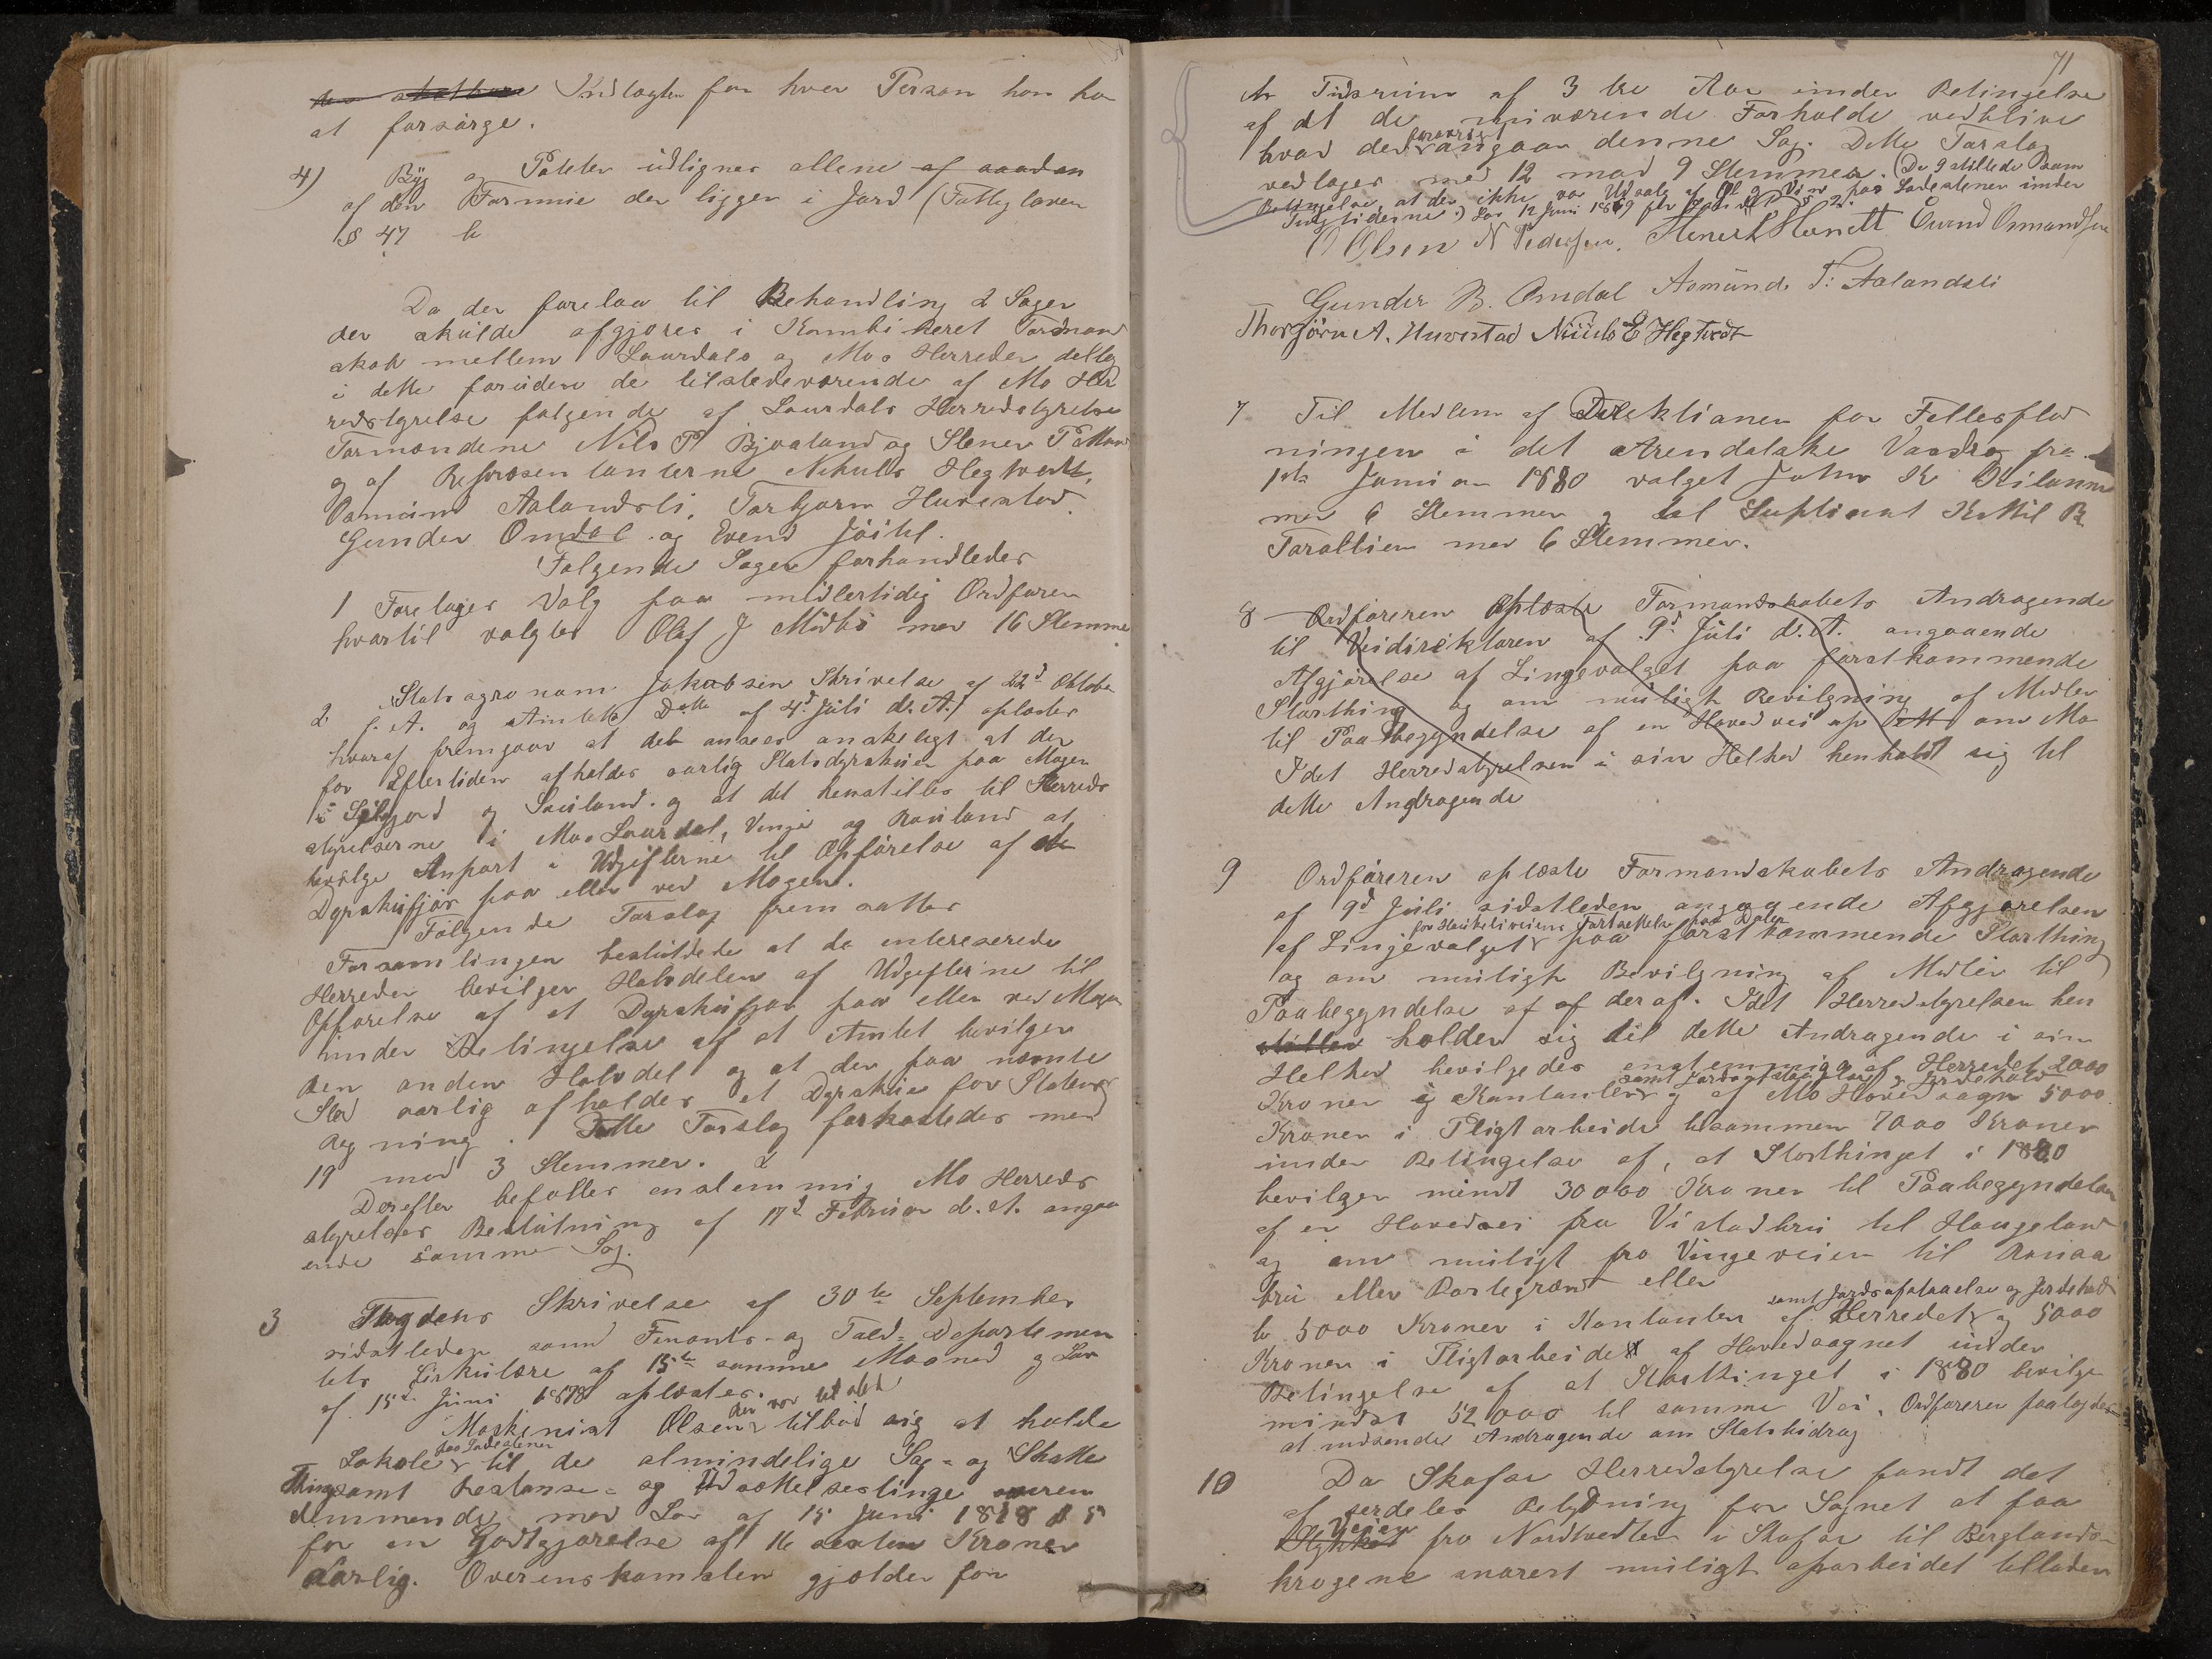 Indlagten for hver Person han har
at forsørge.
4) Byg og Poteter udlignes allene af saadan
af den Formue der ligger i Jord (Fattigloven
§ 47 b
Da der forelaa til Behandling 2 Sager
der skulde afgjøres i Kombineret Formand
skab mellem Laurdals og Mos Herreder deltog
i dette foruden de tilstedeværende af Mo Her
redstyrelse følgende af Laurdals Herredstyrelse
Formændene Nils P Bjaaland og Stener P Moen
og af Repræsentanterne Nikuls Hegtvedt,
Osmund Aalandsli, Torbjørn Huvestad
Gunder Omdal og Evend Jøitil.
Følgende Sager forhandledes
1 Foretages Valg paa midlertidig Ordfører
hvortil valgtes Olaf J Midbø med 16 Stemmer
2 Statsagronom Jakobsen Skrivelse af 22d Oktober
f. A. og Amtets Dto af 4d Juli d. A. oplæstes
hvoraf fremgaar at det ansees ønskeligt at der
for Eftertiden afholdes aarlig Statsdyrskuer paa Mogen
i Seljord og Sauland og at det henstilles til Herreds
styrelserne i Mo, Laurdal, Vinje og Rauland at
bevilge Anpart i Udgifterne til Opførelse af et
Dyrskufjøs paa eller ved Mogen.
Følgende Forslag fremsattes
Forsamlingen besluttede at de intereserede
Herreder bevilger Halvdelen af Udgifterne til
Opførelse af et Dyrskufjøs paa eller ved Mogen
under Betingelse af at Amtet bevilger
den anden Halvdel og at der paa nævnte
Sted aarlig afholdes et Dyrskue for Statens
Regning. Dette Forslag forkastedes med
19 mod 3 Stemmer.
Derefter befattes enstemmig Mo Herreds
styrelses Beslutning af 17d Februar d. A. angaa
ende samme Sag.
3 Fogdens Skrivelse af 30te September
sidstleden samt Finants- og Told-Departemen
tets Cirkulære af 15te samme Maaned og Lov
af 15de Juni 1878 oplæstes.
der var tilstede
Maskinist Olsen tilbød sig at holde
paa Ladestenen
Lokale til de almindelige Sag- og Skatte
Thing samt Restanse- og Udsættelsestinge overen
stemmende med Lov af 15 Juni 1878 § 5
for en Godtgjørelse af 16 sexten Kroner
Aarlig. Overenskomsten gjælder for
71
et Tidsrum af 3 tre Aar under Betingelse
af at de nuværende Forholde vedblive
forøvrigt
hvad der angaar denne Sag. Dette Forslag
vedtoges med 12 mod 9 Stemmer. (De 9 stillede som
Betingelse, at der ikke var Udsalg af Øl og Vin paa Ladestenen under
Tingtiderne.)
O Olsen N Pedersen. Evend Osmundsen
Gunder B. Omdal Asmund T: Aalandsli
Thorbjørn A. Huvestad Nikuls E Hegtvedt
7 Til Medlem af Direktionen for Fellesflød
ningen i det Arendalske Vasdrag fra
1ste Januar 1880 valget John K
med 6 Stemmer og til Suplient Kettil B
med 6 Stemmer.
8 Ordføreren oplæste Formandskabets Andragende
til Veidirektøren af 9d Juli d. A. angaaende
Afgjørelse af Linjevalget paa førstkommende
Storthing og om muligt Bevilgning af Midler
til Paabegyndelse af en Hovedvei op om Mo
Idet Herredstyrelsen i sin Helhed henholdt sig til
dette Andragende
9 Ordføreren oplæste Formandskabets Andragende
af 9d Juli sidstleden angaaende Afgjørelsen
for Haukeliveiens Fortsættelse fra Dalen
af Linjevalget paa førstkommende Storthing
og om muligt Bevilgning af Midler til
Paabegyndelse af af deraf. Idet Herredstyrelsen hen
stiller holder sig til dette Andragende i sin
Helhed bevilgedes enstemmig af Herredet 2000
samt Jordafstaaelse og Jordehold
Kroner i Kontanter og af Mo Hovedsogn 5000
Kroner i Pligtarbeide tilsammen 7000 Kroner
under Betingelse af, at Storthinget i 1880
bevilger mindst 30000 Kroner til Paabegyndelsen
af en Hovedvei fra Vistadbru til Haugeland
og om muligt fra Vinjeveien til
bru eller Bortegrænd eller
samt Jordsafstaaelse og Jordehold
b 5000 Kroner i Kontanter af Herredet og 5000
Kroner i Pligtarbeidet af Hovedsognet under
Betingelse af at Storthinget i 1880 bevilger
mindst 52000 til samme Vei. Ordføreren paalagdes
at indsende Andragende om Statsbidrag
10 Da Skafsaa Herredstyrelse fandt det
af serdeles Betydning for Sognet at faa
Veien
Stykket fra Nordbødtn i Skafsaa til Berglands-
krogene snarest muligt oparbeidet tillader